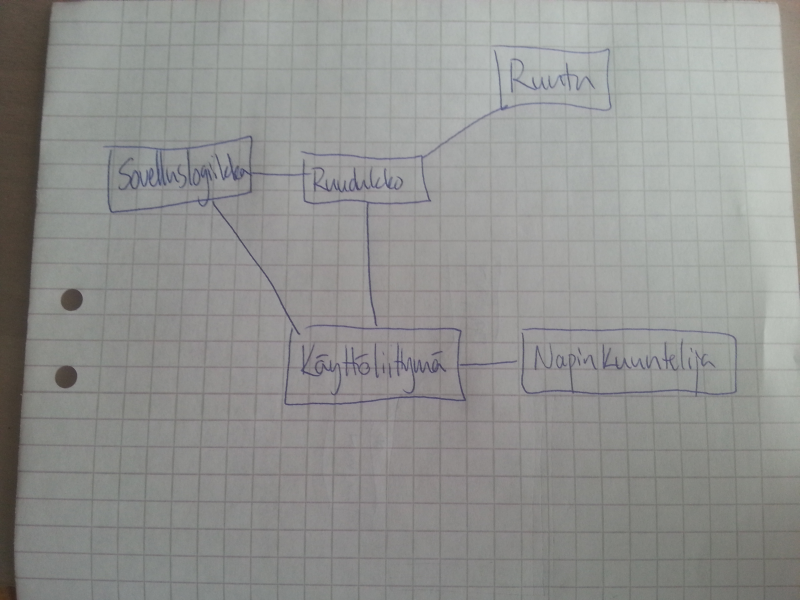 Ruutu
Sovelluslogiikka
Ruudukko
Käyttöliittymä
Napinkuuntelija